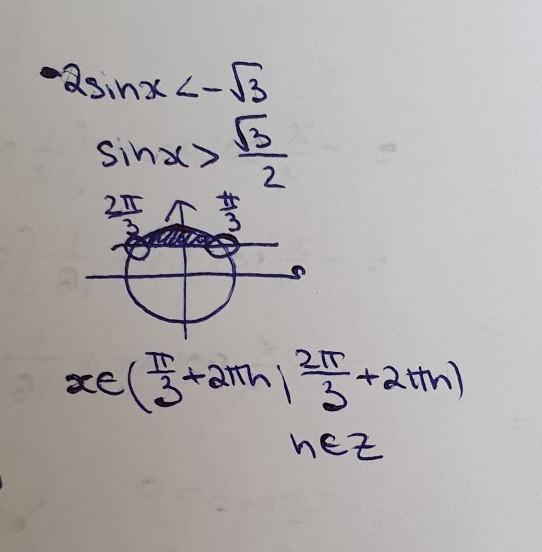 -2sinx<-√3
sinx> √3/2
2π/3 π/3
x∈(π/3+2πn; 2π/3+2πn)
n∈Z